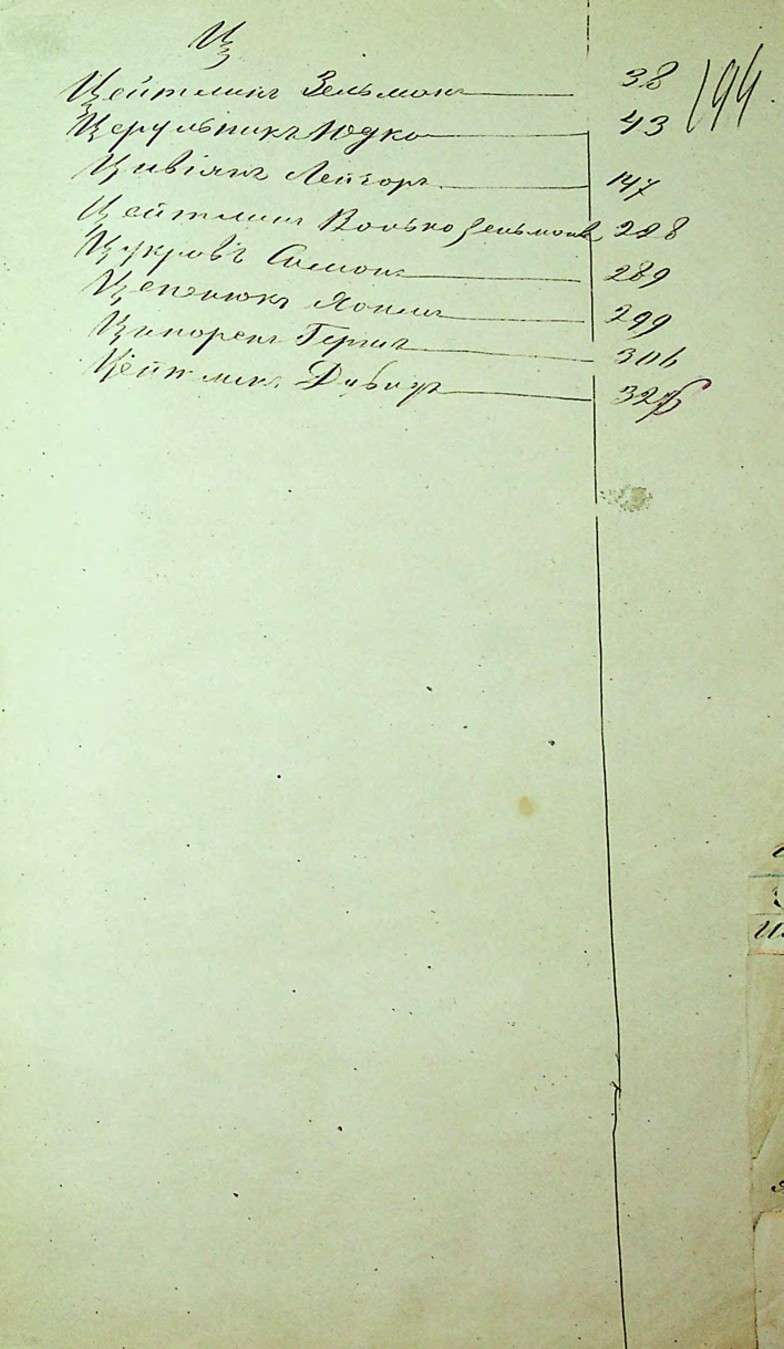 Ц
Цейтлинъ Зельманъ 38 194
Церульникъ Юдко 43
Цивіянъ Лейзоръ 147
Цейтлинъ Волько Зельмановъ 228
Цукровъ Симонъ 289
Цепенюкъ 299
Ципоренъ Гершъ 306
Цейтлинъ Давидъ 326